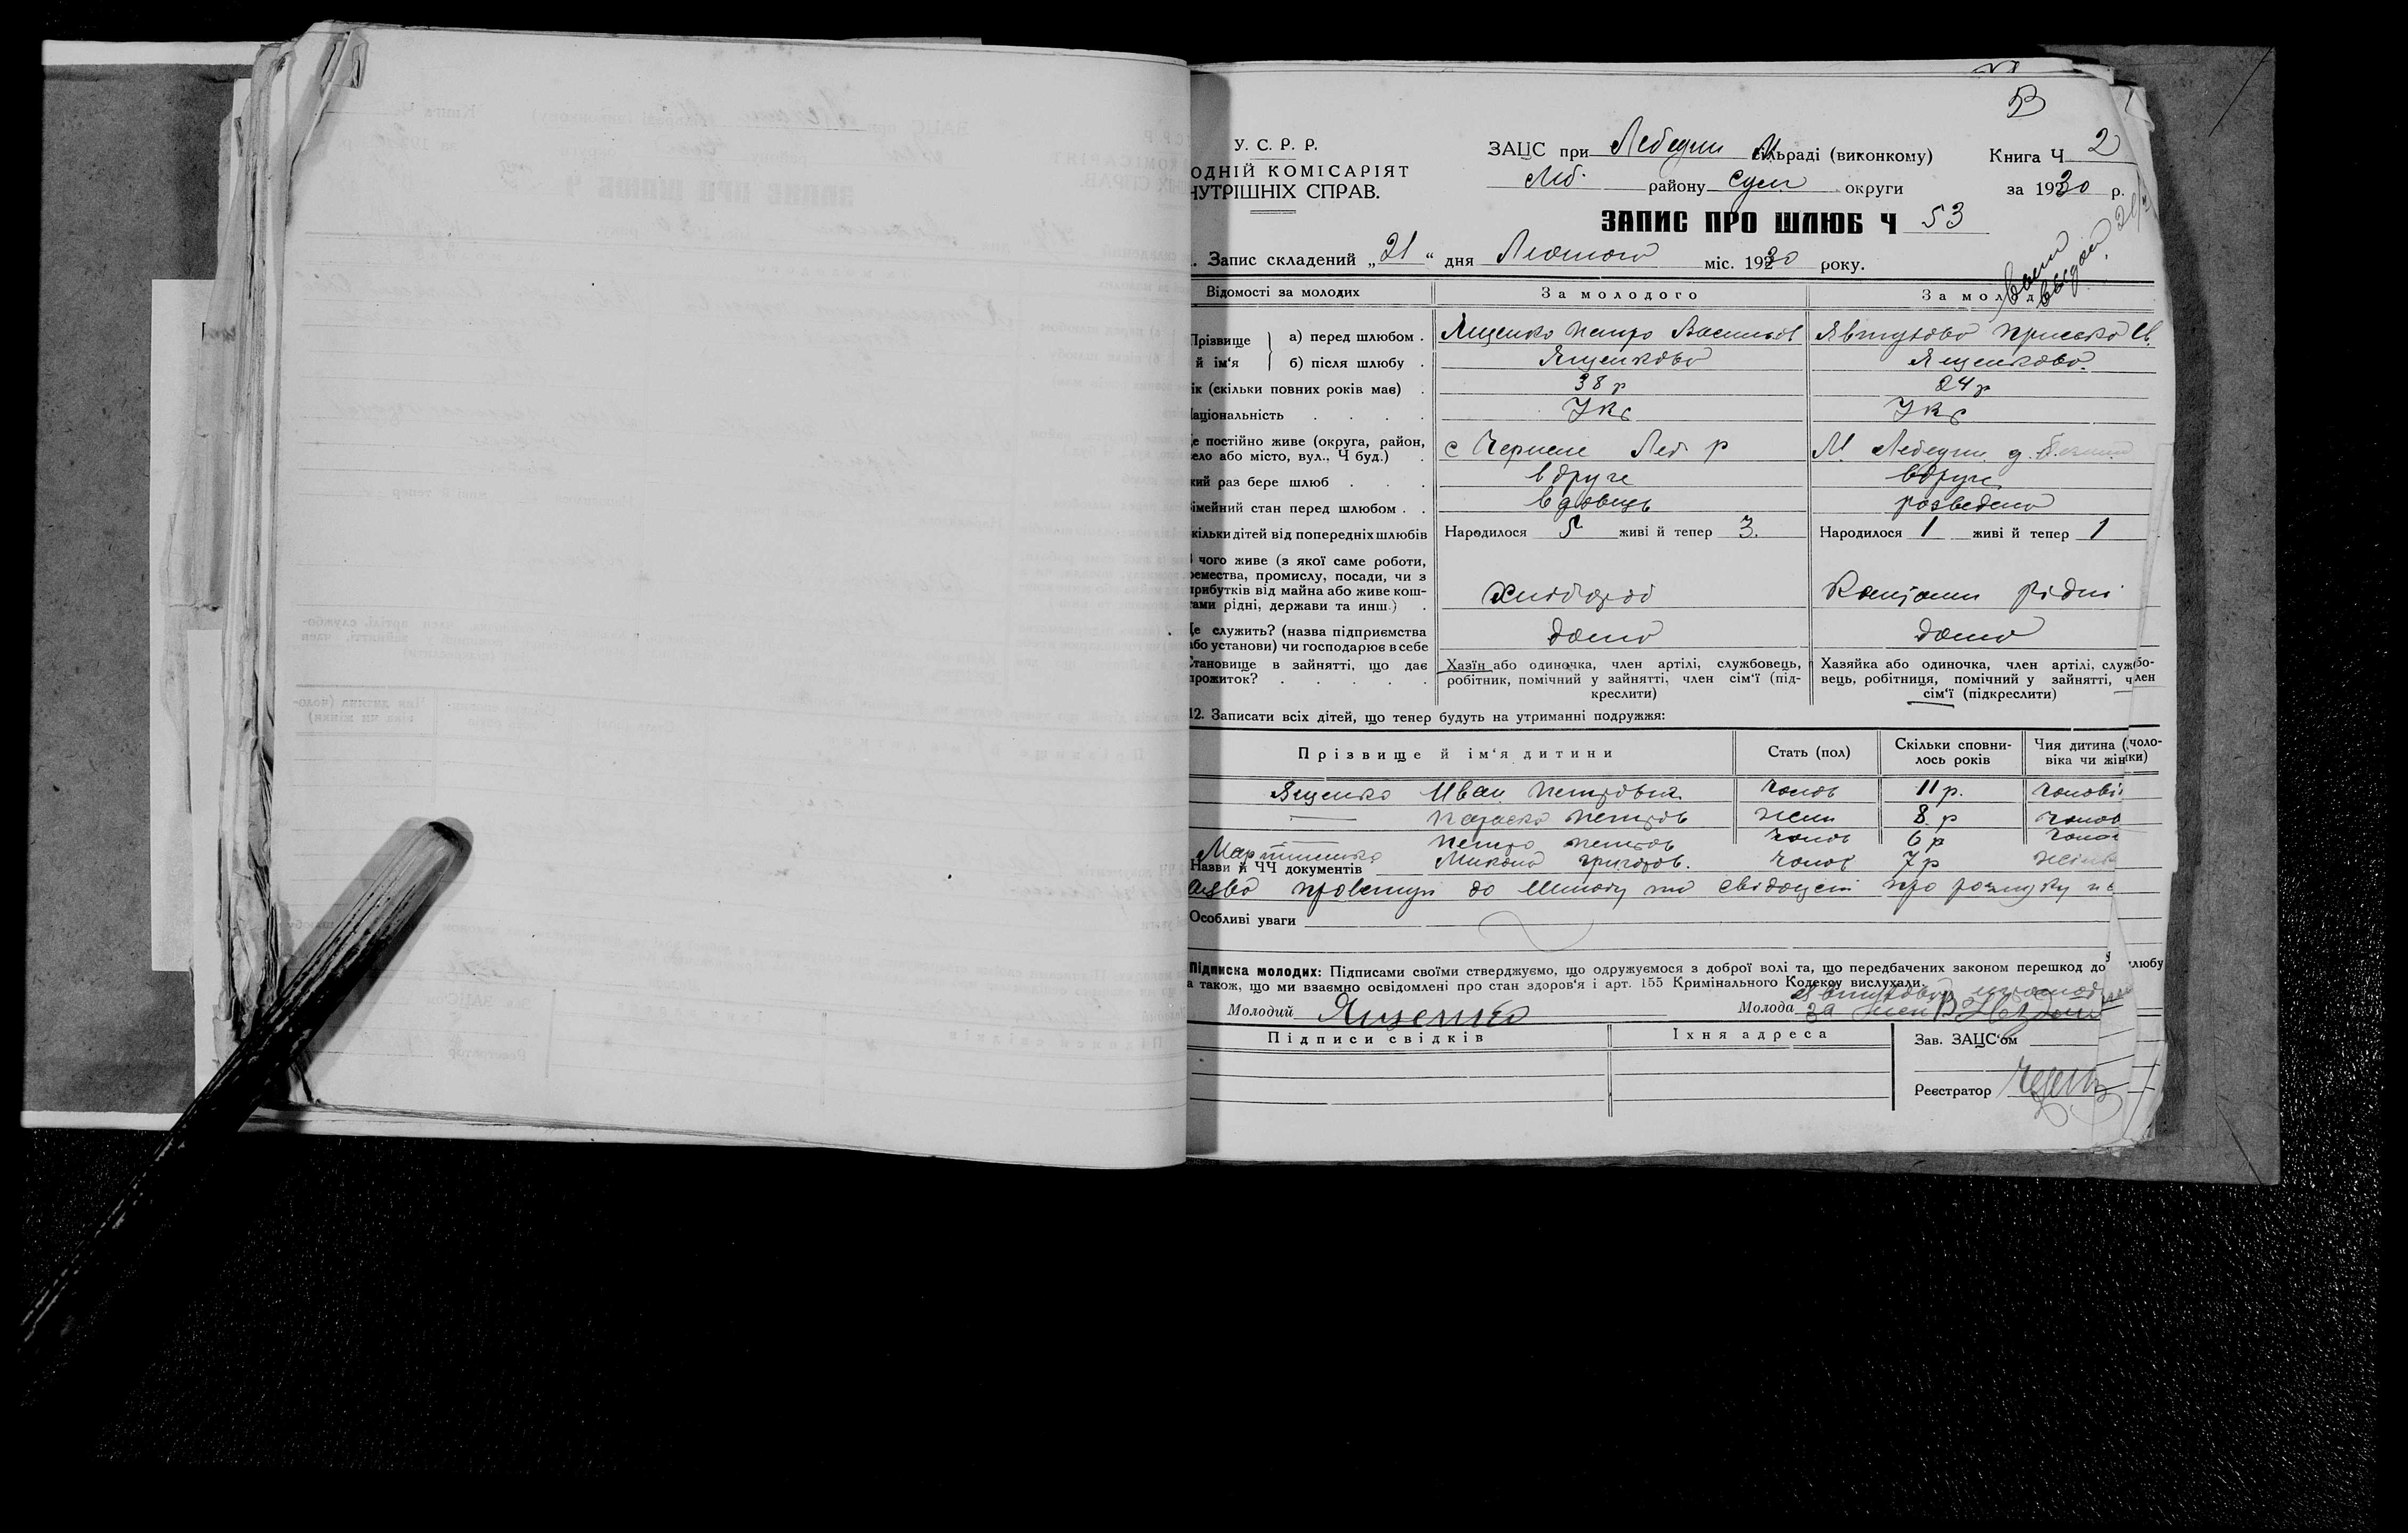 53
У. С. Р. Р.
ОДНІЙ КОМІСАРІЯТ
НУТРІШНІХ СПРАВ.
ЗАЦС при Лебедин М льраді (виконкому) Книга Ч 2
Леб. району Сум округи за 1930 р.
ЗАПИС ПРО ШЛЮБ Ч 53
. Запис складений „21“ дня Лютого міс. 1930 року.
Відомості за молодих
За молодого
За молод
Прізвище й ім‘я
а) перед шлюбом . Ященко Петро Васильов Явтухова Приська
б) після шлюбу . Ященково Ященкова.
ік (скільки повних років має) . 38 р 24 р
аціональність . . . . Укр Укр
е постійно живе (округа, район,
ело або місто, вул., Ч буд.) . с Черв Леб р М. Лебедин
кий раз бере шлюб . . . вдруге вдруге
імейний стан перед шлюбом . . вдовець розведена
кільки дітей від попередніх шлюбів Народилося 5 живі й тепер 3. Народилося 1 живі й тепер 1
чого живе (з якої саме роботи,
ремества, промислу, посади, чи з
прибутків від майна або живе кош-
тами рідні, держави та инш.) . Хлібороб Коштами рідні
е служить? (назва підприємства
або установи) чи господарює в себе дома дома
Становище в зайнятті, що дає
прожиток? . . . . .
Хазїн або одиночка, член артілі, службовець,
робітник, помічний у зайнятті, член сім‘ї (під-
креслити)
Хазяйка або одиночка, член артілі, службо-
вець, робітниця, помічний у зайнятті, член
сім‘ї (підкреслити)
12. Записати всіх дітей, що тепер будуть на утриманні подружжя:
Прізвище й ім‘я дитини
Стать (пол)
Скільки сповни-
лось років
Чия дитина (чоло-
віка чи жінки)
Ященко Иван Петрович чолов 11 р. чолові
— Параска Петров жин 8 р чолов
— Петро Петров чолов 6 р чолов
Мартиненко Микола Григоров. чолов 7 р жінк
Назви й ЧЧ документів
аява про вступ до шлюбу та свідоцт про розлуку
Особливі уваги
Підписка молодих: Підписами своїми стверджуємо, що одружуємося з доброї волі та, що передбачених законом перешкод до шлюбу
а також, що ми взаємно освідомлені про стан здоров‘я і арт. 155 Кримінального Кодексу вислухали.
Молодий Ященко Молода Явтухова
за неї
Підписи свідків
Їхня адреса
Зав. ЗАЦС‘ом
Реєстратор